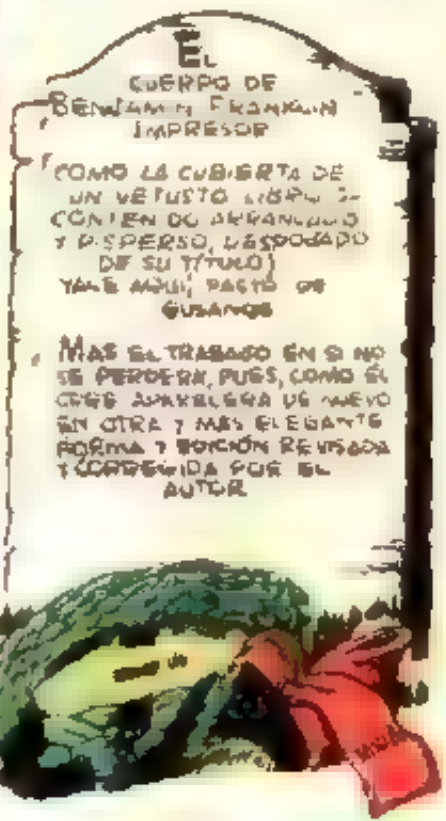 EL
CUERPO DE
BENJAMIN FRANKLIN
IMPRESOR
COMO LA CUBIERTA DE
UN VETUSTO LIBRO (SU
CONTENIDO ARRANCADO
Y DISPERSO, DESPOJADO
DE SU TÍTULO)
YACE AQUÍ, PASTO DE
GUSANOS
MAS EL TRABAJO EN SI NO
SE PERDERA, PUES, COMO ÉL
CREE APARECERA DE NUEVO
EN OTRA Y MAS ELEGANTE
FORMA Y EDICIÓN REVISADA
Y CORREGIDA POR EL
AUTOR